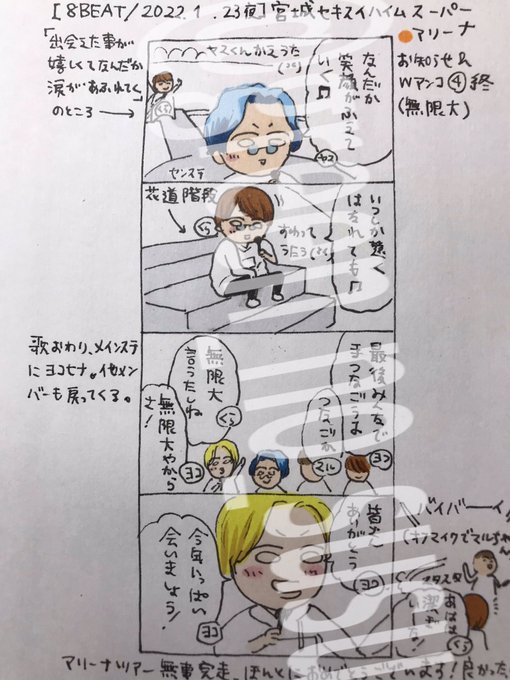 [8BEAT/2022.1.23夜]宮城セキスイハイムスーパー
アリーナ
お知らせ&
Wアンコ④終
(無限大)
「出会えた事が
嬉しくてなんだか
涙があふれてく」
のところ→
ヤスくんかえうた
なんだか
笑顔がふえて
いく♫
ヤス
センステ
花道階段
くら
すわって
うたう
いつか遠く
はなれても♫
歌おわり、メインステ
にヨコヒナ。他メン
バーも戻ってくる。
最後みんなで
手つなごうよ
つなごか
無限大
言うたしね
くら
無限大やから
さ!
ヨコ
マル
ヨコ
皆さん
ありがとう
ヨコ
今年いっぱい
会いましょう!
ヨコ
バイバーイ
(オフマイクでマルちゃん
くら
アリーナツアー無事完走、ほんとにおめでとうございます!良かった